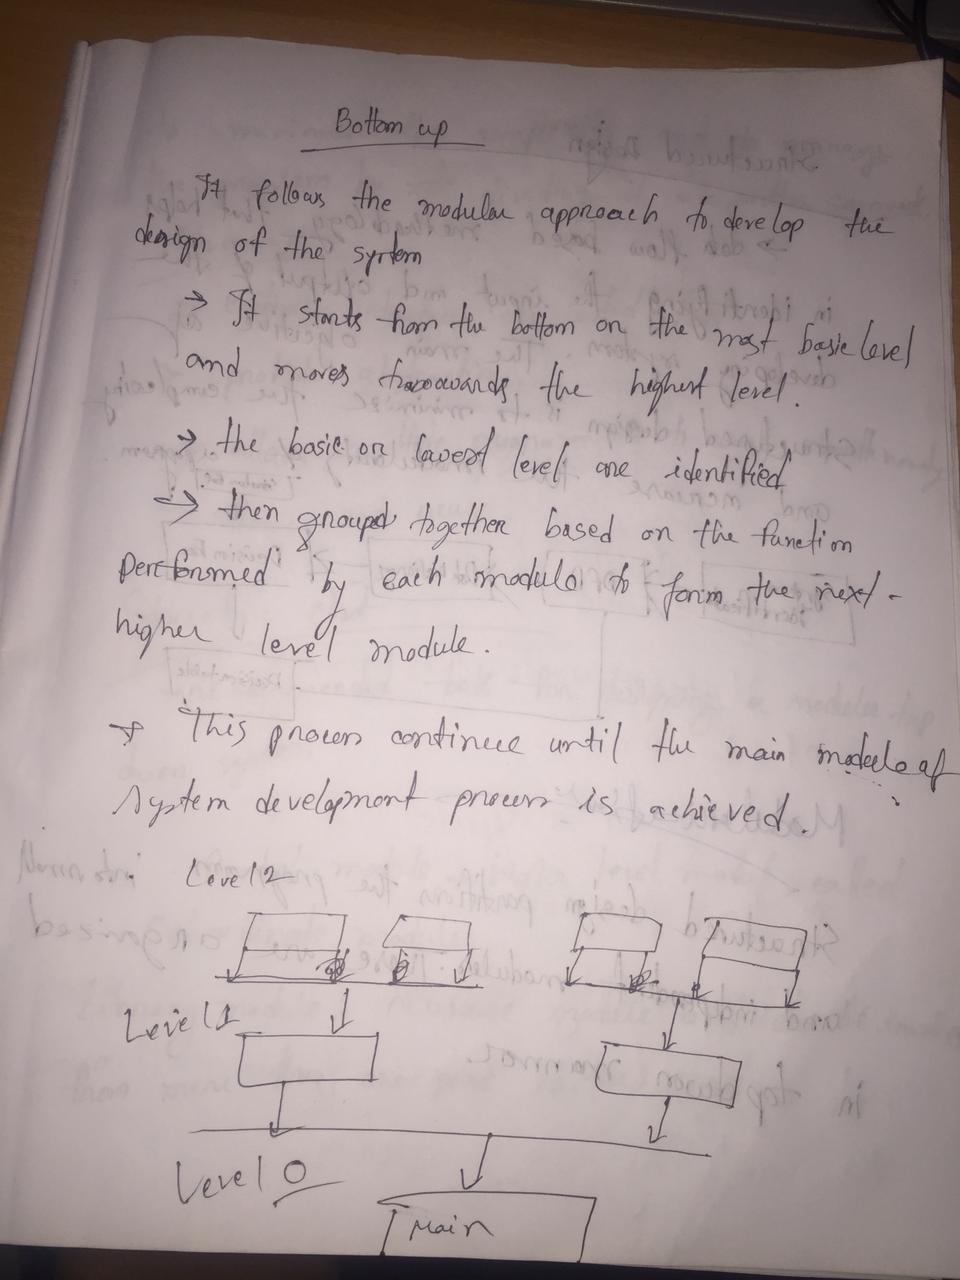 Bottom up
It follows the modular approach to develop the
design of the system
→ It starts from the bottom or the most basic level
and moves towards the highest level.
→ the basic or lowest level are identified
→ then grouped together based on the function
performed by each module to form the next
higher level module.
→ This process continue until the main module of
system development process is achieved.
Level 2
Level 1
Level 0
Main